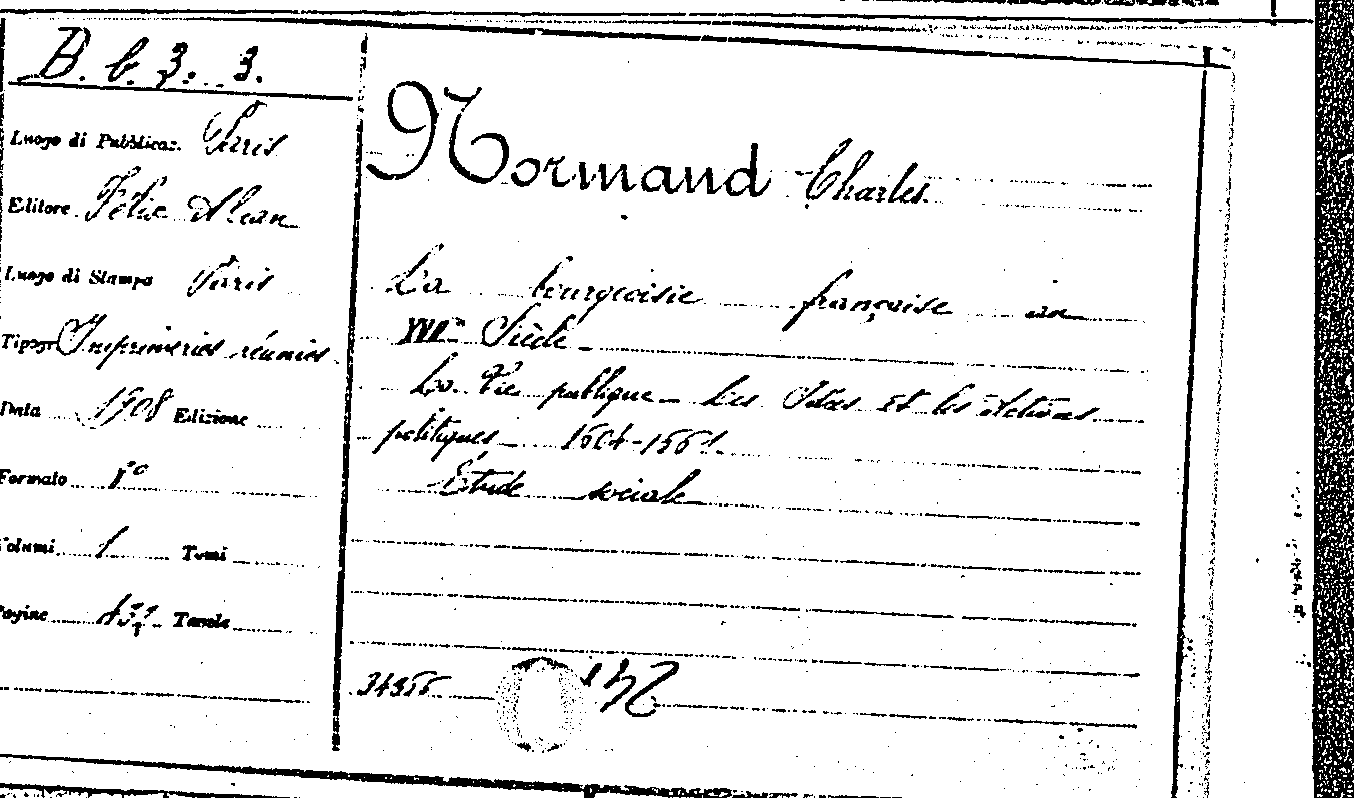 B. b. 3. 3.
Luogo di Pubblicaz. Paris
Editore Félix Alcan
Luogo di Stampa Paris
Tipogr Imprimeries réunies
Data 1908 Edizione
Formato 8°
Volumi 1 Tomi
Pagine Tavole
Normand Charles.
La bourgeoisie française au
XVIIe Siècle
La Vie publique - Les Idées et les Actions
politiques 1604-1661.
Étude sociale